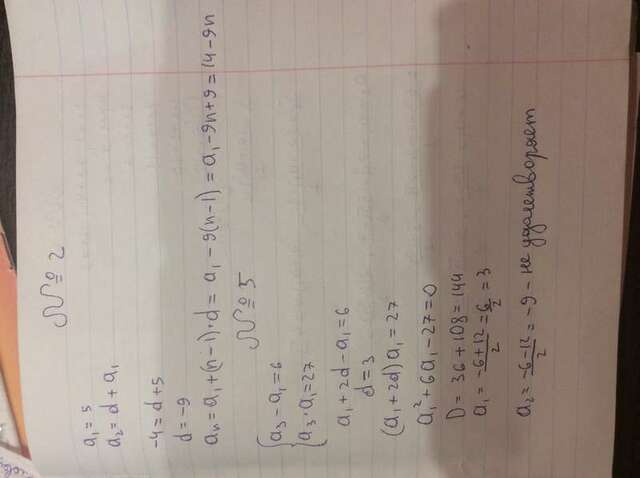 № 2
a₁ = 5
a₂ = d + a₁
-4 = d + 5
d = -9
aₙ = a₁ + (n-1)·d = a₁ - 9(n-1) = a₁ - 9n + 9 = 14 - 9n
№ 5
{ a₃ - a₁ = 6
a₃ · a₁ = 27
a₁ + 2d - a₁ = 6
d = 3
(a₁ + 2d) a₁ = 27
a₁² + 6a₁ - 27 = 0
D = 36 + 108 = 144
a₁ = (-6+12)/2 = 6/2 = 3
a₂ = (-6-12)/2 = -9 - не удовлетворяет